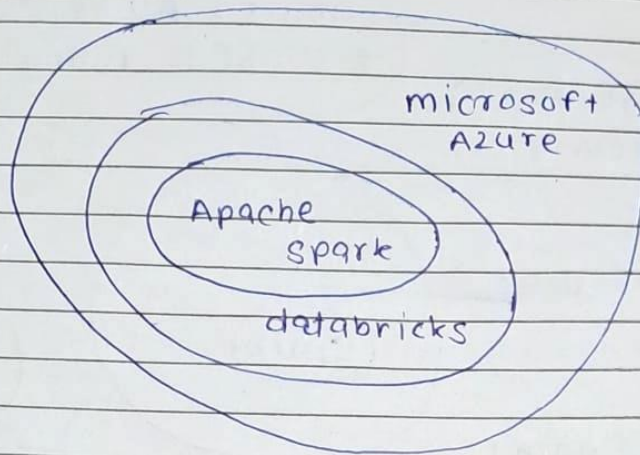 microsoft
Azure
Apache
spark
databricks